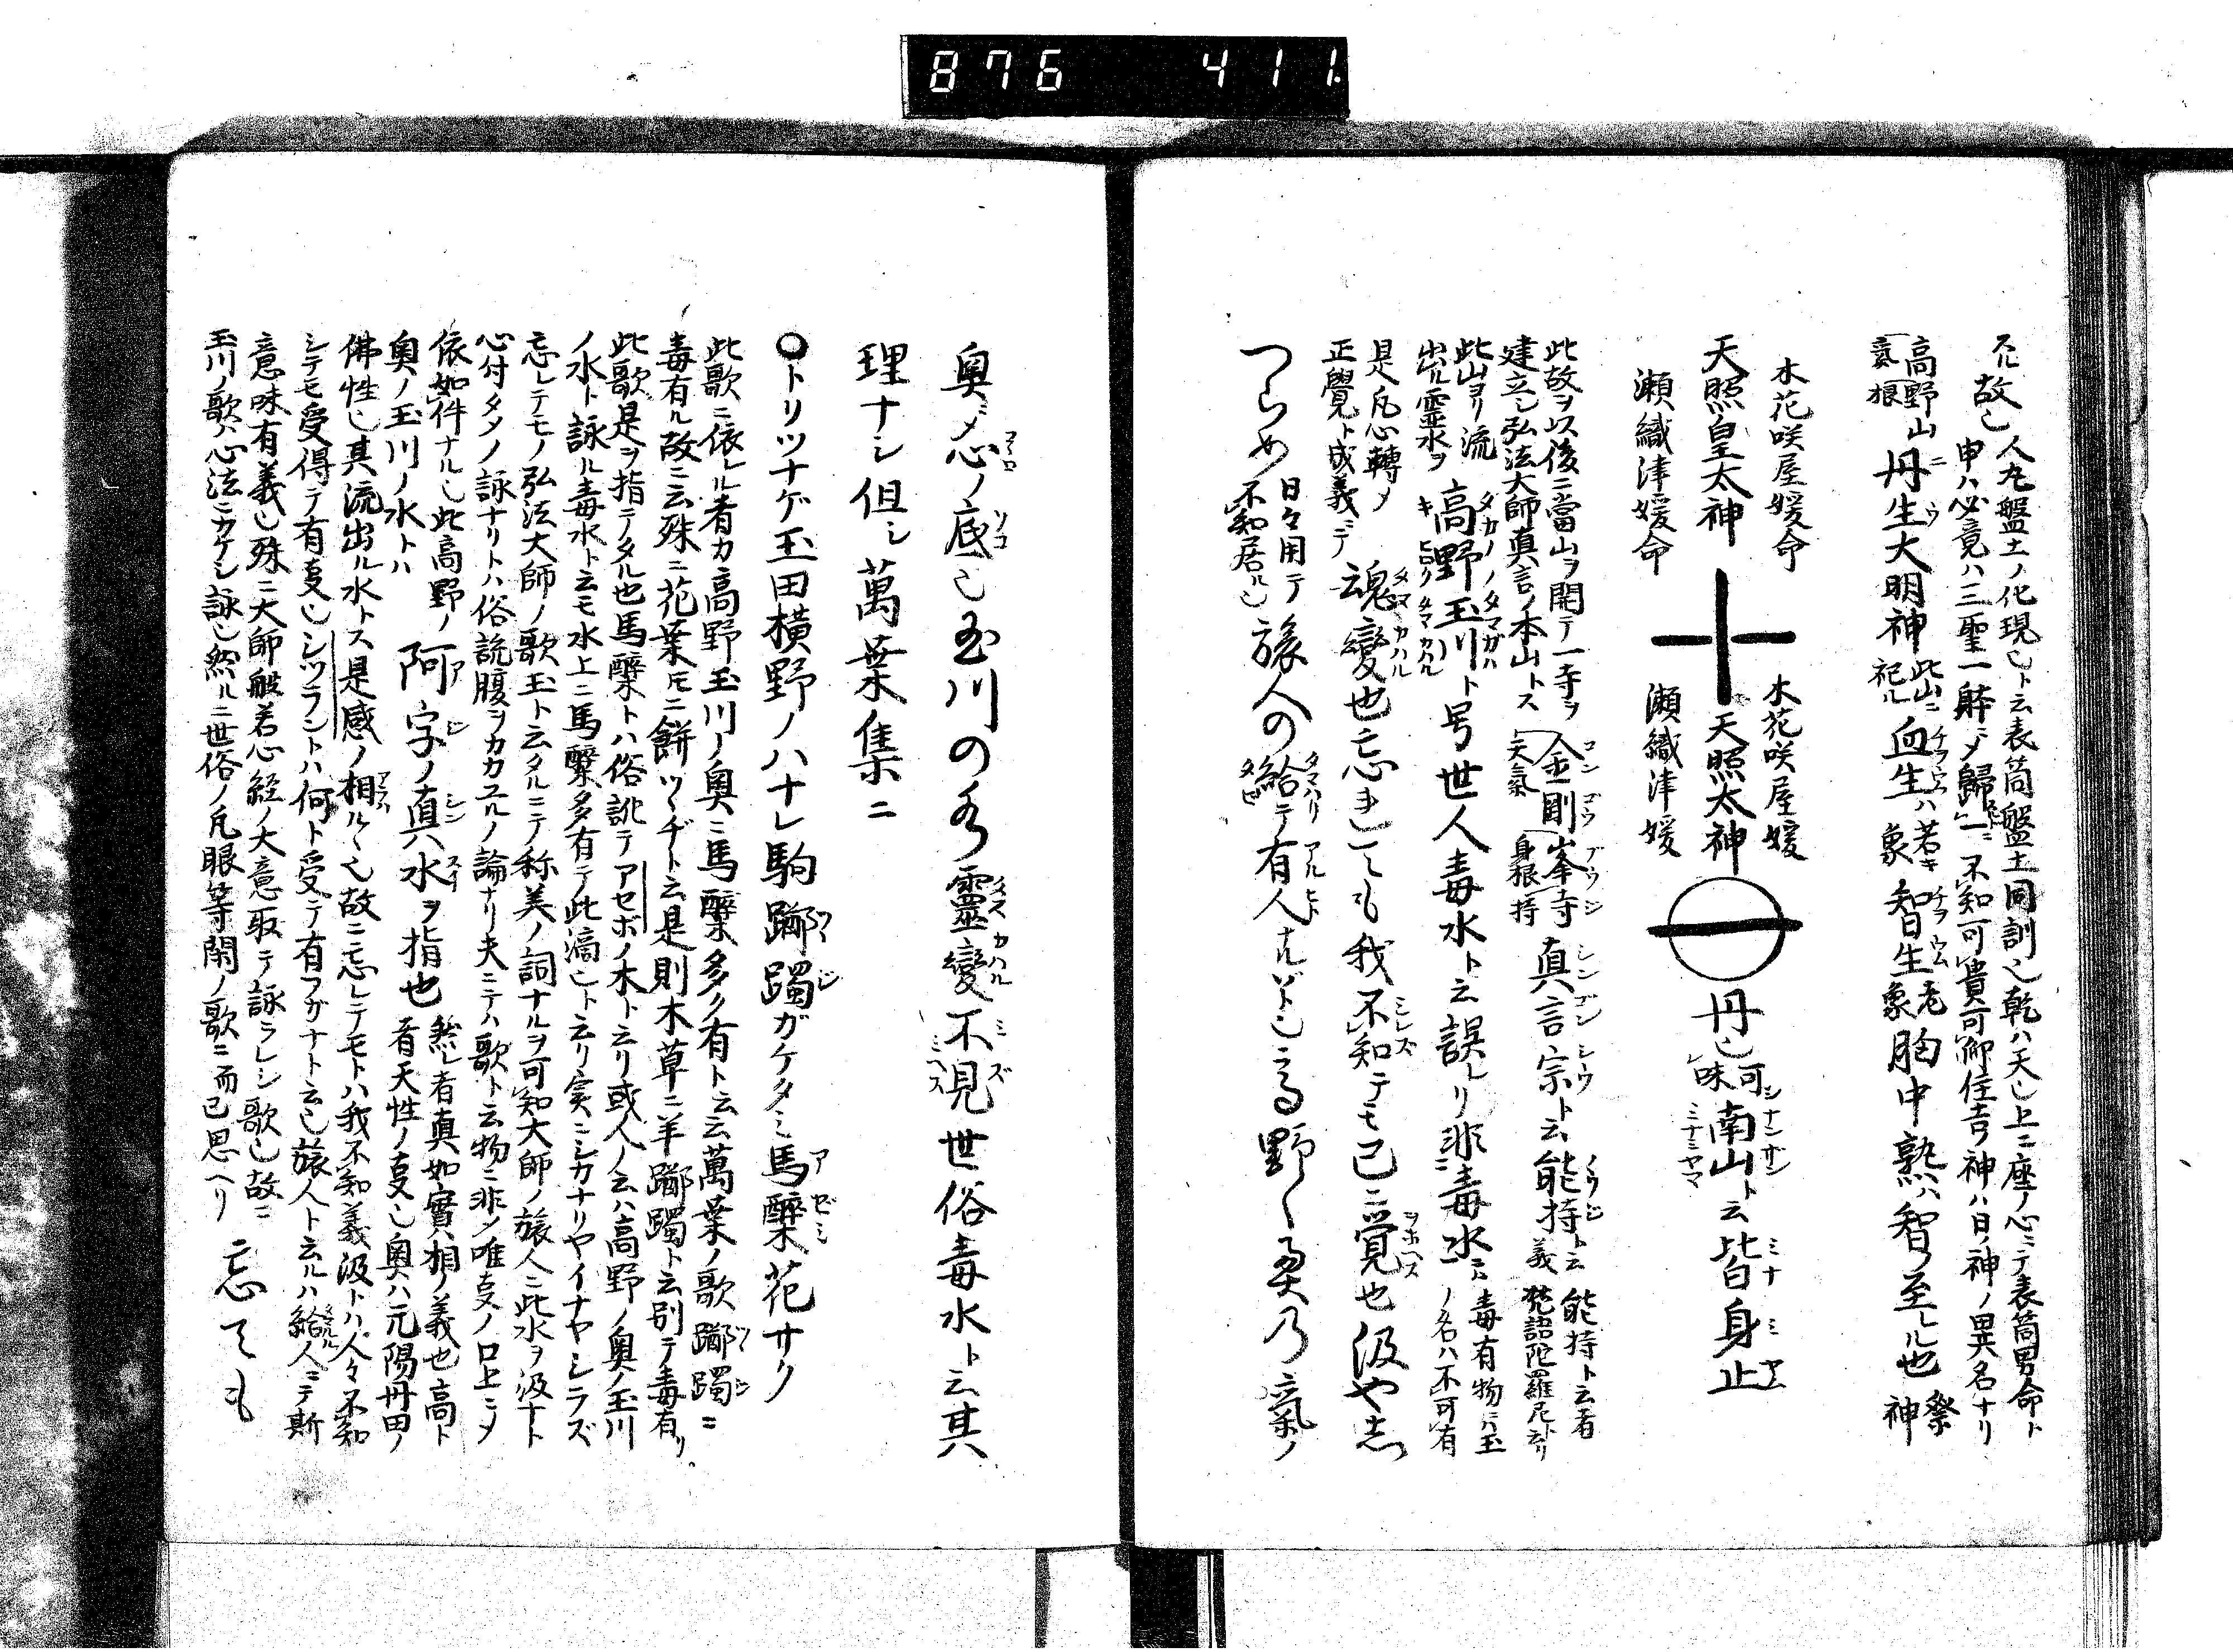 876 411
スル故也人丸盤土ノ化現也ト云表筒盤土同訓也乾ハ天也上ニ座ノ心ニテ表筒男命ト
申ハ必竟ハ三聖一躰ニ〆歸一ニ不知可貴可仰住吉ノ神ハ日ノ神ノ異名ナリ
高野山 丹生大明神 此山ニ祀ル 血生ハ若キ象 智生老象 胸中熟ハ智ノ至ル也 祭神
氣根
木花咲屋媛命 木花咲屋媛
天照皇太神 天照太神 丹也 可味 南山ト云 皆身止
瀬織津媛命 瀬織津媛
此故ヲ以後ニ當山ヲ開テ一寺ヲ
建立シ弘法大師真言ノ本山トス 金剛峯寺 天氣 身根持 真言宗ト云 能持ト云義 能持ト云者 梵語陀羅尼ト云リ
此山ヨリ流
出ル霊水ヲ 高野玉川ト号世人毒水ト云誤レリ非毒水ニ 毒有物ニハ玉ノ名ハ不可有
是凡心轉〆
正覺ト成義ニテ 魂變也忘れても我不知テモ已ニ覚也汲や志
つらめ 日々用テ不知居ル也 旅人の 給テ有人ナルべし 高野ノ奥乃 氣ノ
奥ニ〆心ノ底也玉川の水靈變不見世俗毒水ト云其
理ナシ但シ萬葉集ニ
○トリツナゲ玉田横野ノハナレ駒躑躅ガケタニ馬醉木花サク
此歌ニ依レル者カ高野玉川ノ奥ニ馬醉木多ク有ト云萬葉ノ歌躑躅ニ
毒有ル故ニ云殊ニ花葉𪜈ニ餅ツヽヂト云是則木草ニ羊躑躅ト云別テ毒有リ
此歌是ヲ指テタル也馬醉木トハ俗訛テアセボノ木ト云リ或人ノ云ハ高野ノ奥ノ玉川
ノ水ト詠ル毒水ト云モ水上ニ馬醉木多有テ此滴也ト云リ実ニシカナリヤイナヤシラズ
忘レテモノ弘法大師ノ歌玉ト云タルニテ称美ノ詞ナルヲ可知大師ノ旅人ニ此水ヲ汲ナト
心付タメノ詠ナリトハ俗説腹ヲカカユルノ論ナリ夫ニテハ歌ト云物ニ非ノ唯支ノ口上ニ〆
依如件ナル也此高野ノ 阿字ノ真水ヲ指也 然レ者真如實相ノ義也高ト
奥ノ玉川ノ水トハ 者天性ノ支也奥ハ元陽丹田ノ
佛性也其流出ル水トス是感ノ相ルヽ也故ニ忘レテモトハ我不知義汲トハ人々不知
シテモ受得テ有支也シツラントハ何ト受テ有フガナト云也旅人ト云ルハ給人ニテ斯
意味有義也殊ニ大師般若心経ノ大意取テ詠ラレシ歌也故ニ
玉川ノ歌ハ心法ニカケシ詠也然ルニ世俗ノ凡眼等閑ノ歌ニ而已思ヘリ 忘ても